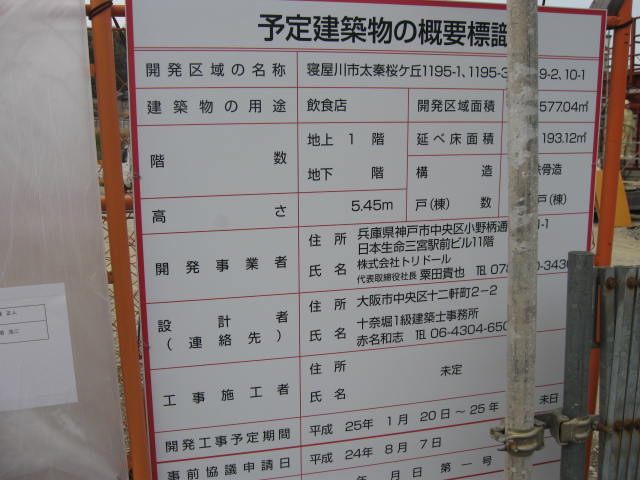 予定建築物の概要標識
開発区域の名称 寝屋川市太秦桜ケ丘1195-1、1195-3 9-2、10-1
建築物の用途 飲食店 開発区域面積 577.04㎡
階数 地上 1 階 延べ床面積 193.12㎡
地下 階 構造 骨造
高さ 5.45m 戸(棟)数 戸(棟)
開発事業者 住所 兵庫県神戸市中央区小野柄通 -1
日本生命三宮駅前ビル11階
氏名 株式会社トリドール
代表取締役社長 粟田貴也 TEL 078 0-3430
設計者 (連絡先) 住所 大阪市中央区十二軒町2-2
氏名 十奈堀1級建築士事務所
赤名和志 TEL 06-4304-650
工事施工者 住所 未定
氏名
開発工事予定期間 平成 25年 1月 20日～25年 未日
事前協議申請日 平成 24年 8月 7日
年 月 日 第一号